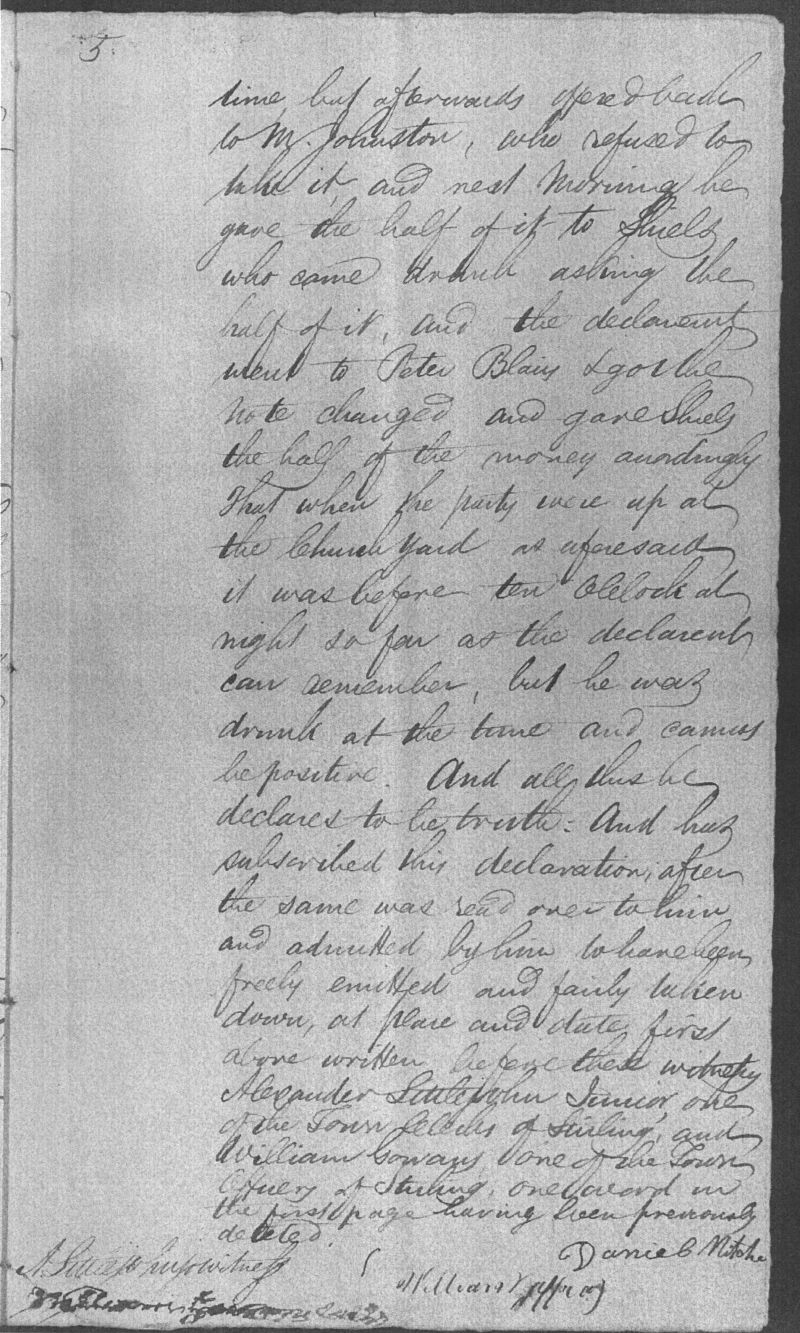 5.
time, but afterwards offered back
to Mr. Johnston, who refused to
take it, and next Morning he
gave the half of it to Shiels
who came drunk asking the
half of it, and the declarent
went to Peter Blair & got the
note changed and gave Shiels
the half of the money accordingly
That when the party were up at
the Church Yard as aforesaid
it was before ten OClock at
night so far as the declarent
can remember, but he was
drunk at the time and cannot
be positive. And all this he
declares to be truth: And has
subscribed this declaration, after
the same was read over to him
and admitted by him to have been
freely emitted and fairly taken
down, at place and date first
above written before these witnesses
Alexander Littlejohn Junior, one
of the Town Clerks of Stirling, and
William Gowans one of the Town
Officers of Stirling, one word in
the first page having been previously
deleted.
Daniel Mitche
A. Littlejohn Junr witness
William